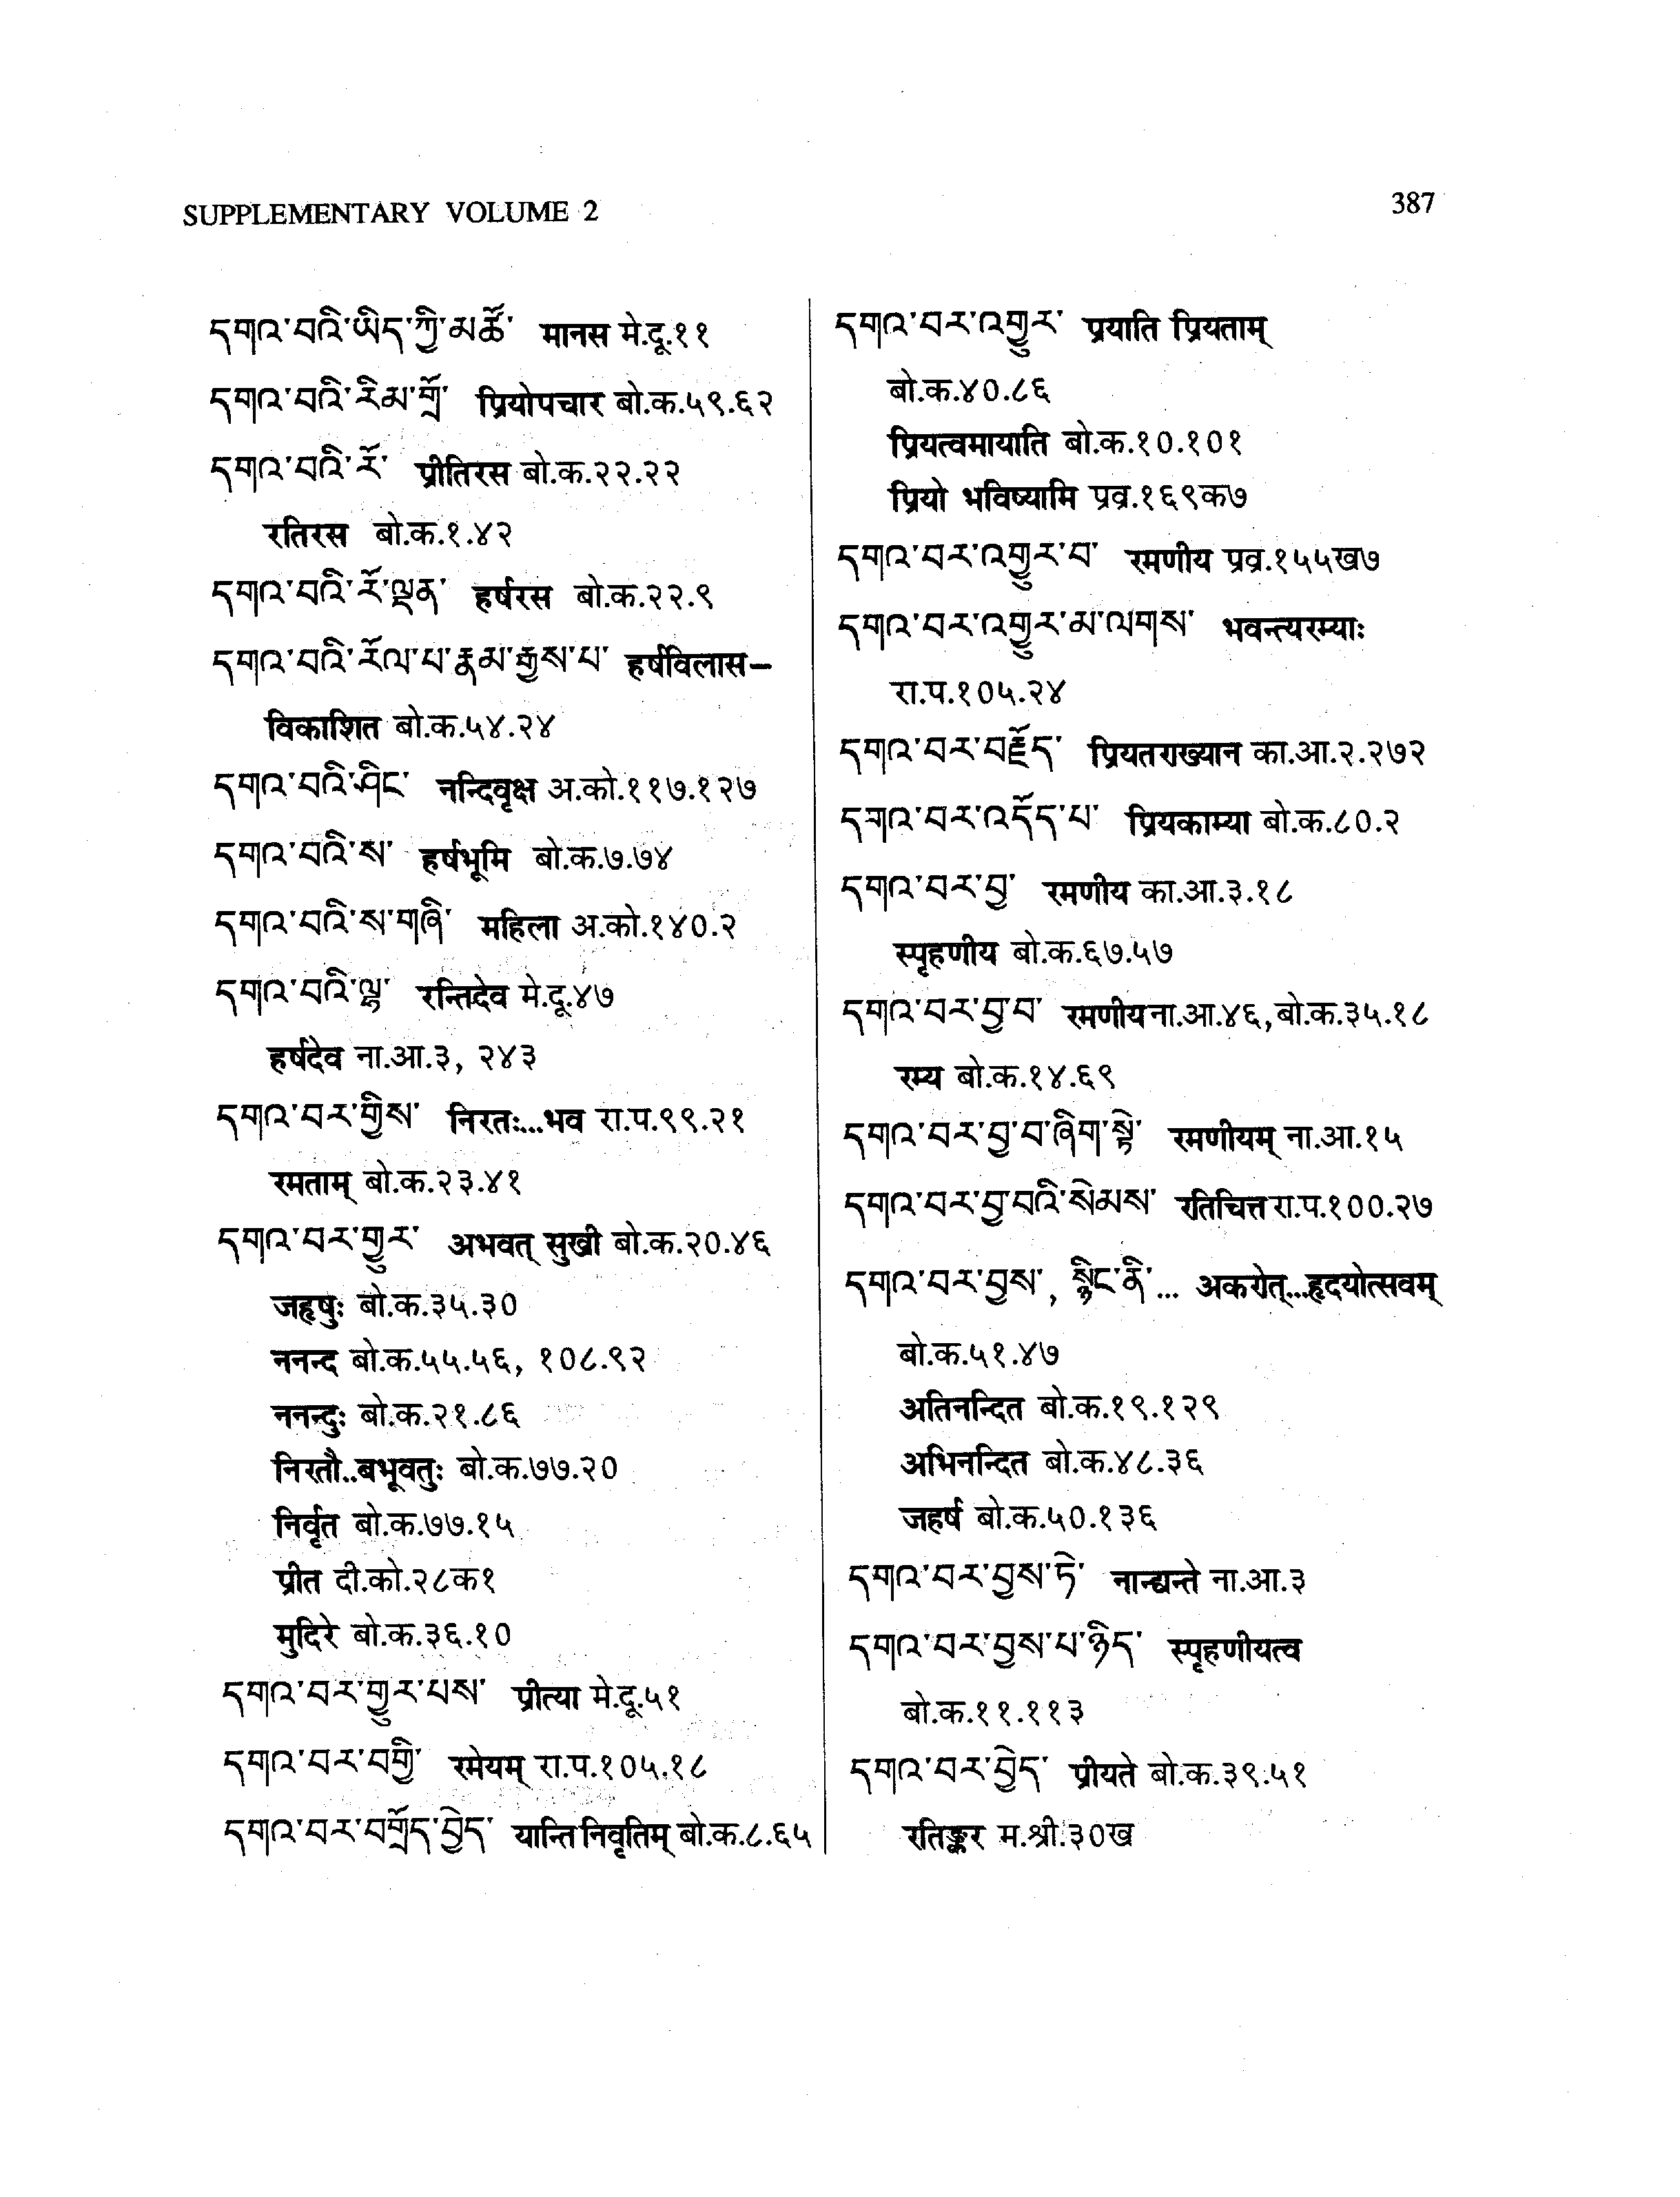 SUPPLEMENTARY VOLUME 2
387
དགའ་བའི་ཡིད་ཀྱི་མཚོ་ मानस मे.दू.११
དགའ་བའི་རིམ་གྲོ་ प्रियोपचार बो.क.५९.६२
དགའ་བའི་རོ་ प्रीतिरस बो.क.२२.२२
रतिरस बो.क.१.४२
དགའ་བའི་རོ་ལྡན་ हर्षरस बो.क.२२.९
དགའ་བའི་རོལ་པ་རྣམ་རྒྱས་པ་ हर्षविलास–
विकाशित बो.क.५४.२४
དགའ་བའི་ཤིང་ नन्दिवृक्ष अ.को.११७.१२७
དགའ་བའི་ས་ हर्षभूमि बो.क.७.७४
དགའ་བའི་ས་གཞི་ महिला अ.को.१४०.२
དགའ་བའི་ལྷ་ रन्तिदेव मे.दू.४७
हर्षदेव ना.आ.३, २४३
དགའ་བར་གྱིས་ निरतः...भव रा.प.९९.२१
रमताम् बो.क.२३.४१
དགའ་བར་གྱུར་ अभवत् सुखी बो.क.२०.४६
जहृषुः बो.क.३५.३०
ननन्द बो.क.५५.५६, १०८.९२
ननन्दुः बो.क.२१.८६
निरतौ..बभूवतुः बो.क.७७.२०
निर्वृत बो.क.७७.१५
प्रीत दी.को.२८क१
मुदिरे बो.क.३६.१०
དགའ་བར་གྱུར་པས་ प्रीत्या मे.दू.५१
དགའ་བར་བགྱི་ रमेयम् रा.प.१०५.१८
དགའ་བར་བགྲོད་བྱེད་ यान्ति निवृतिम् बो.क.८.६५
དགའ་བར་འགྱུར་ प्रयाति प्रियताम्
बो.क.४०.८६
प्रियत्वमायाति बो.क.१०.१०१
प्रियो भविष्यामि प्रव्र.१६९क७
དགའ་བར་འགྱུར་བ་ रमणीय प्रव्र.१५५ख७
དགའ་བར་འགྱུར་མ་ལགས་ भवन्त्यरम्याः
रा.प.१०५.२४
དགའ་བར་བརྗོད་ प्रियतराख्यान का.आ.२.२७२
དགའ་བར་འདོད་པ་ प्रियकाम्या बो.क.८०.२
དགའ་བར་བྱ་ रमणीय का.आ.३.१८
स्पृहणीय बो.क.६७.५७
དགའ་བར་བྱ་བ་ रमणीय ना.आ.४६, बो.क.३५.१८
रम्य बो.क.१४.६९
དགའ་བར་བྱ་བ་ཞིག་སྟེ་ रमणीयम् ना.आ.१५
དགའ་བར་བྱ་བའི་སེམས་ रतिचित्त रा.प.१००.२७
དགའ་བར་བྱས་, སྙིང་ནི་... अकरोत्...हृदयोत्सवम्
बो.क.५१.४७
अतिनन्दित बो.क.१९.१२९
अभिनन्दित बो.क.४८.३६
जहर्ष बो.क.५०.१३६
དགའ་བར་བྱས་ཏེ་ नान्द्यन्ते ना.आ.३
དགའ་བར་བྱས་པ་ཉིད་ स्पृहणीयत्व
बो.क.११.११३
དགའ་བར་བྱེད་ प्रीयते बो.क.३९.५१
रतिङ्कर म.श्री.३०ख